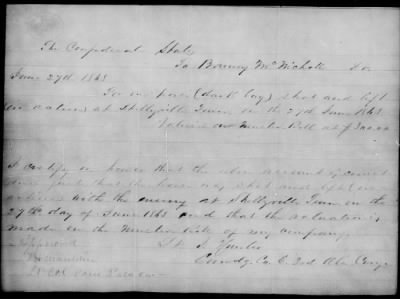 The Confederate States
To Barney McNichols Dr
June 27th 1863
For one horse (dark bay) shot and left
in action at Shelbyville Tenn on the 27th June 1863
Valued on Muster Roll at $300.00
I certify on honor that the above account is correct
and just that the horse was shot and left in
action with the enemy at Shelbyville Tenn on the
27th day of June 1863 and that the valuation is
made on the Muster Roll of my company
Approved
Lt
Comdg Co C 3rd Ala Cavy
Lt Col